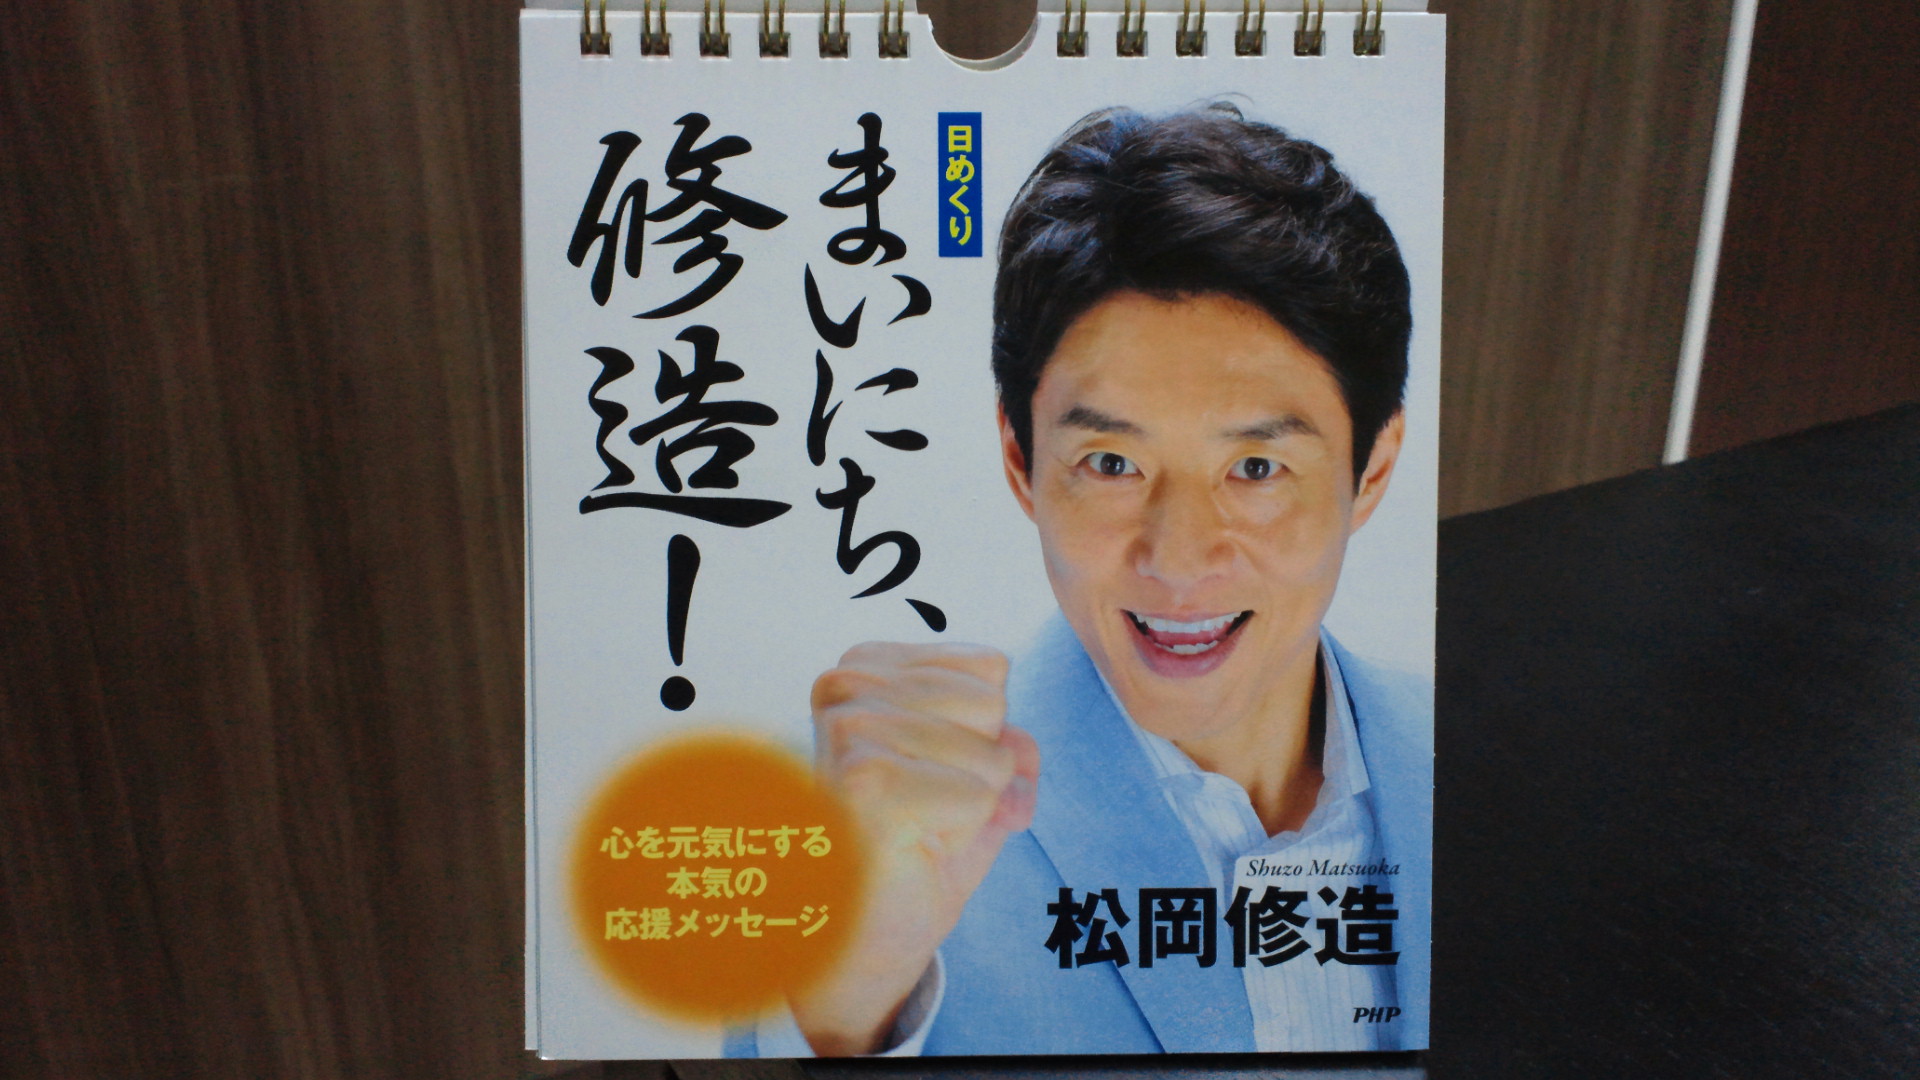 日めくり
まいにち、
修造！
心を元気にする
本気の
応援メッセージ
Shuzo Matsuoka
松岡修造
PHP